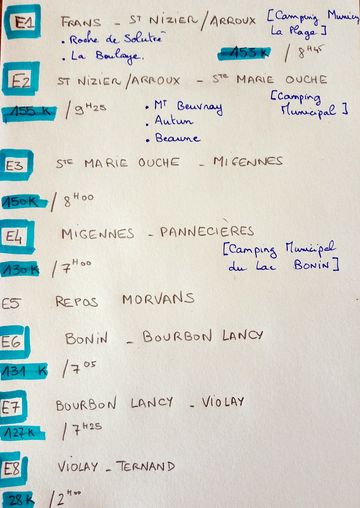 E1 FRANS - ST NIZIER/ARROUX [Camping Munici
La Plage]
• Roche de Solutré
• La Boulaye. 153 K / 8H45
E2 ST NIZIER/ARROUX - STE MARIE OUCHE
[Camping
Municipal]
155 K / 9H25 • MT Beuvray
• Autun
• Beaune
E3 STE MARIE OUCHE - MIGENNES
150 K / 8H00
E4 MIGENNES - PANNECIÈRES
[Camping Municipal
du Lac BONIN]
130 K / 7H00
E5 REPOS MORVANS
E6 BONIN - BOURBON LANCY
131 K / 7 05
E7 BOURBON LANCY - VIOLAY
127 K / 7H25
E8 VIOLAY - TERNAND
28 K / 2H00